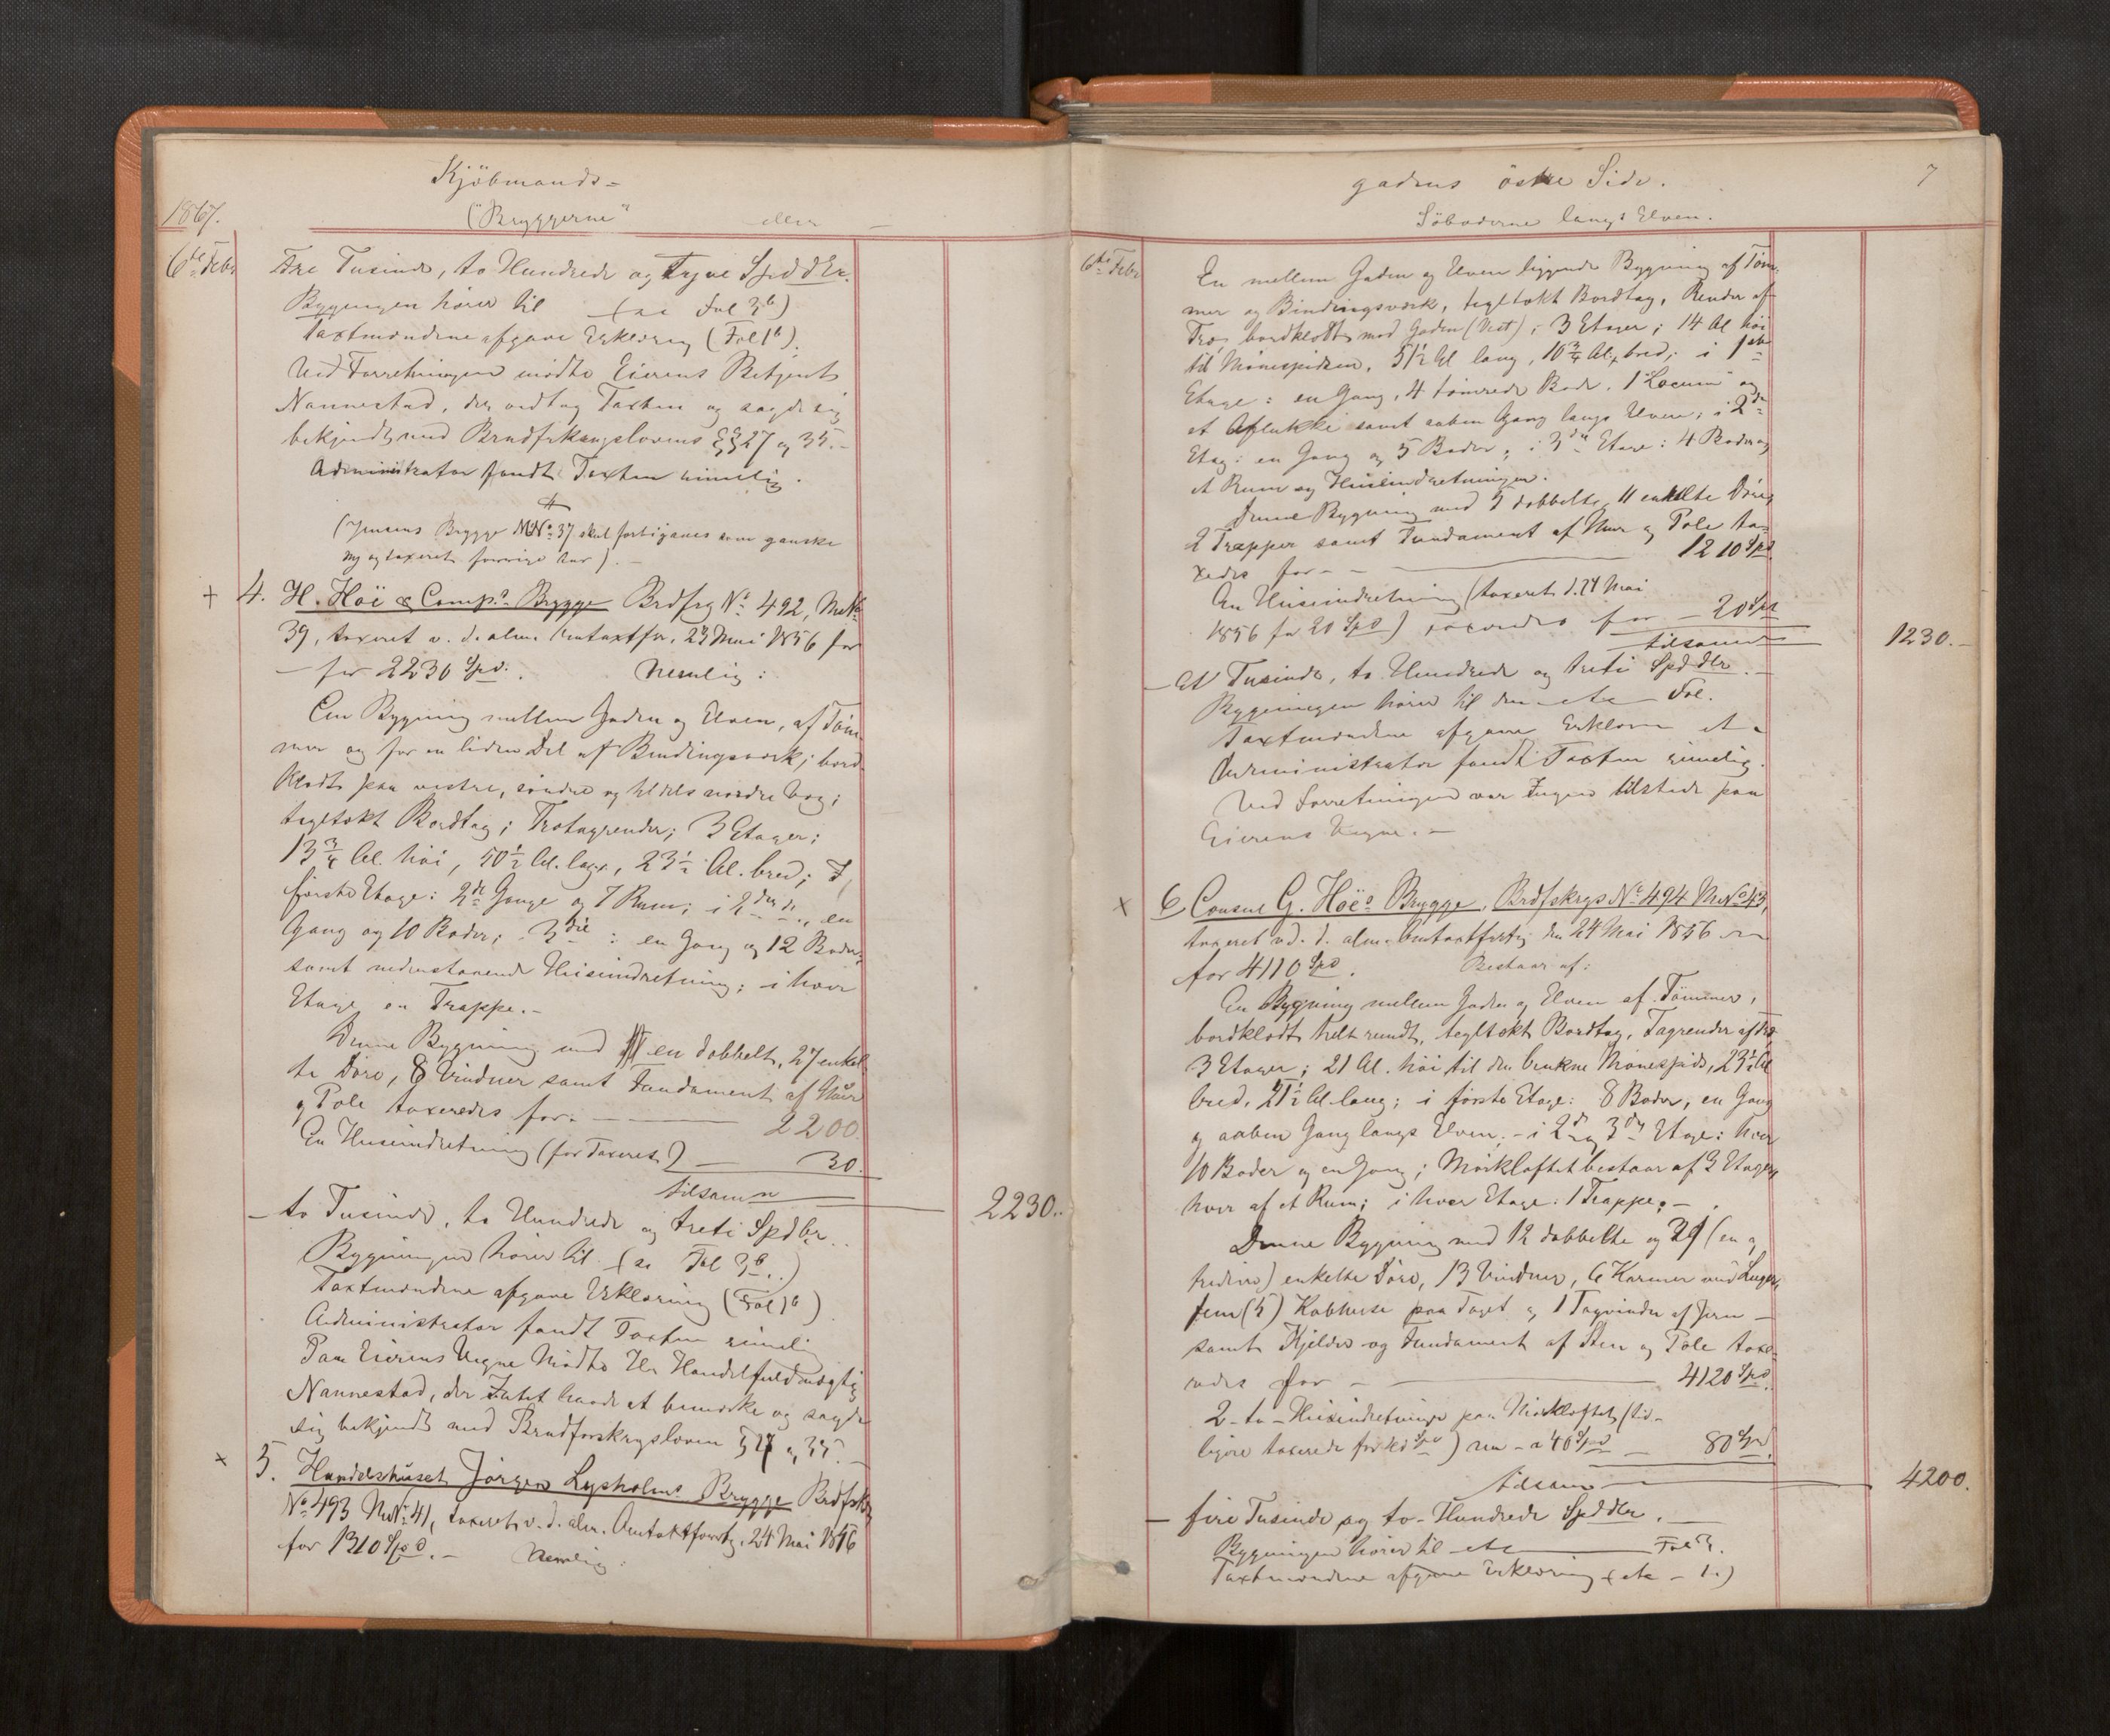 Kjöbmands-
("Bryggerne" eller -
1867.
6te Febr
Tre Tusinde, to Hundrede og Tyve SpdDlr.
Bygningen hører til (se Fol 3b)
Taxtmændene afgave Erklæring (Fol 1b).
Ved Forretningen mødte Eierens Betjent
Nannestad, der vedtog Taxten og sagde sig
bekjendt med Brandforsikringslovens §§ 27 og 35.-
Administrator fandt Taxten rimelig.
(Jensens Brygge MNo 37 skal forbigaaes som ganske
ny og taxeret forrige Aar). -
+ 4. H. Höe & Comps. Brygge Brdfrg No 492, MNo
39, taxeret v. d. alm. Omtaxtfor. 23 Mai 1856 for
- for 2230 Spd. Nemlig:
En Bygning mellem Gaden og Elven, af Töm-
mer og for en liden Del af Bindingsværk; bord-
klædt paa vestre, søndre og tildels nordre Væg;
tegltækt Bordtag; Trætagrender; 3 Etager;
13 3/4 Al. høi, 50 1/2 Al. lang, 23 1/2 Al. bred; I
første Etage: 2de Gange og 7 Rum; i 2den do., en
Gang og 10 Boder; 3die : en Gang og 12 Boder,
samt nedenstaaende Hiseindretning; i hver
Etage en Trappe.-
Denne Bygning med en dobbelt, 27 enkel-
te Döre, 8 Vinduer samt Fundament af Muur
og Pæle taxeredes for. 2200.
En Hiseindretning (før Taxeret) - 30.
tilsamn 2230..
- to Tusinde, to Hundrede og treti Spdlr..
Bygningen hører til (se Fol 3b..)
Taxtmændene afgave Erklæring (Fol 1b)
Administrator fandt Taxten rimelig
Paa Eierens Vegne Mødte Hr Handelsfuldmægtig
Nannestad, der Intet havde at bemærke og sagde
sig bekjendt med Brandforsikringsloven § 27 og 35. -
x 5. Handelshuset Jörgen Lysholms Brygge Brdfskr
No 493 MNo 41, taxeret v. d. alm. Omtaxtforretg. 24 Mai 1856
for 1310 Spd. - Nemlig:
gadens östre Side. 7
Söboderne langs Elven.
6te Febr
En mellem Gaden og Elven liggende Bygning af Töm-
mer og Bindingsværk, tegltækt Bordtag, Render af
Træ, bordklædt mod Gaden (Vest); 3 Etager; 14 Al høi
til Mønespidsen, 51 1/2 Al lang, 10 3/4 Al. bred; i 1ste
Etage: en Gang, 4 tømrede Boder, 1 "Locum" og
et Aflukke samt aaben Gang langs Elven; i 2den
Etag: en Gang og 5 Boder; i 3die Etage: 4 Boder og
et Rum og Hiseindretningen.
Denne Bygning med 5 dobbelte, 11 enkelte Döre,
2 Trapper samt Fundament af Muur og Pæle ta-
xeres for - - 1210 Spd.
En Hiseindretning (taxeret d. 24 Mai
1856 for 20 Spd) taxeredes for - 20 Spd
tilsammen 1230.-
- Et Tusinde, to Hundrede og treti SpdDlr. -
Bygningen hører til den - etc - Fol.
Taxtmændene afgave Erklæri etc
Administrator fandt Taxten rimelig.
Ved Forretningen var Ingen tilstede paa
Eierens Vegne. -
x 6 Consul G. Höes Brygge, Brdfskrgs No 494 MNo 43,
taxeret v. d. alm. Omtaxtforretg den 24 Mai 1856
for 4110 Spd. Bestaar af:
En Bygning mellem Gaden og Elven af Tømmer,
bordklædt helt rundt, tegltækt Bordtag, Tagrender af Træ,
3 Etager; 21 Al. høi til den brukne Mønespids, 23 1/2 Al
bred, 21 1/2 Al. lang; i første Etage: 8 Boder, en Gang
og aaben Gang langs Elven; - i 2den og 3die Etage: hver
10 Boder og en Gang; Mørkloftet bestaar af 3 Etager,
hver af et Rum; i hver Etage: 1 Trappe. -
Denne Bygning med 12 dobbelte og 31 (en og
tredive) enkelte Döre, 13 Vinduer, 6 Karmer med Luger,
fem (5) Kobhuse paa Taget og 1 Tagvindue af Jern -
samt Kjelder og Fundament af Sten og Pæle taxe-
redes for - 4120 Spd.
2 - to - Hiseindretninger paa Mørkloftet (tid-
ligere taxerede for 40 Spd) nu - a 40 Spd - 80 Spd.
tilsam 4200.
- fire Tusinde og to - Hundrede SpdDlr. -
Bygningen hører til etc Fol 3.
Taxtmændene afgave Erklæring (etc - 1.)